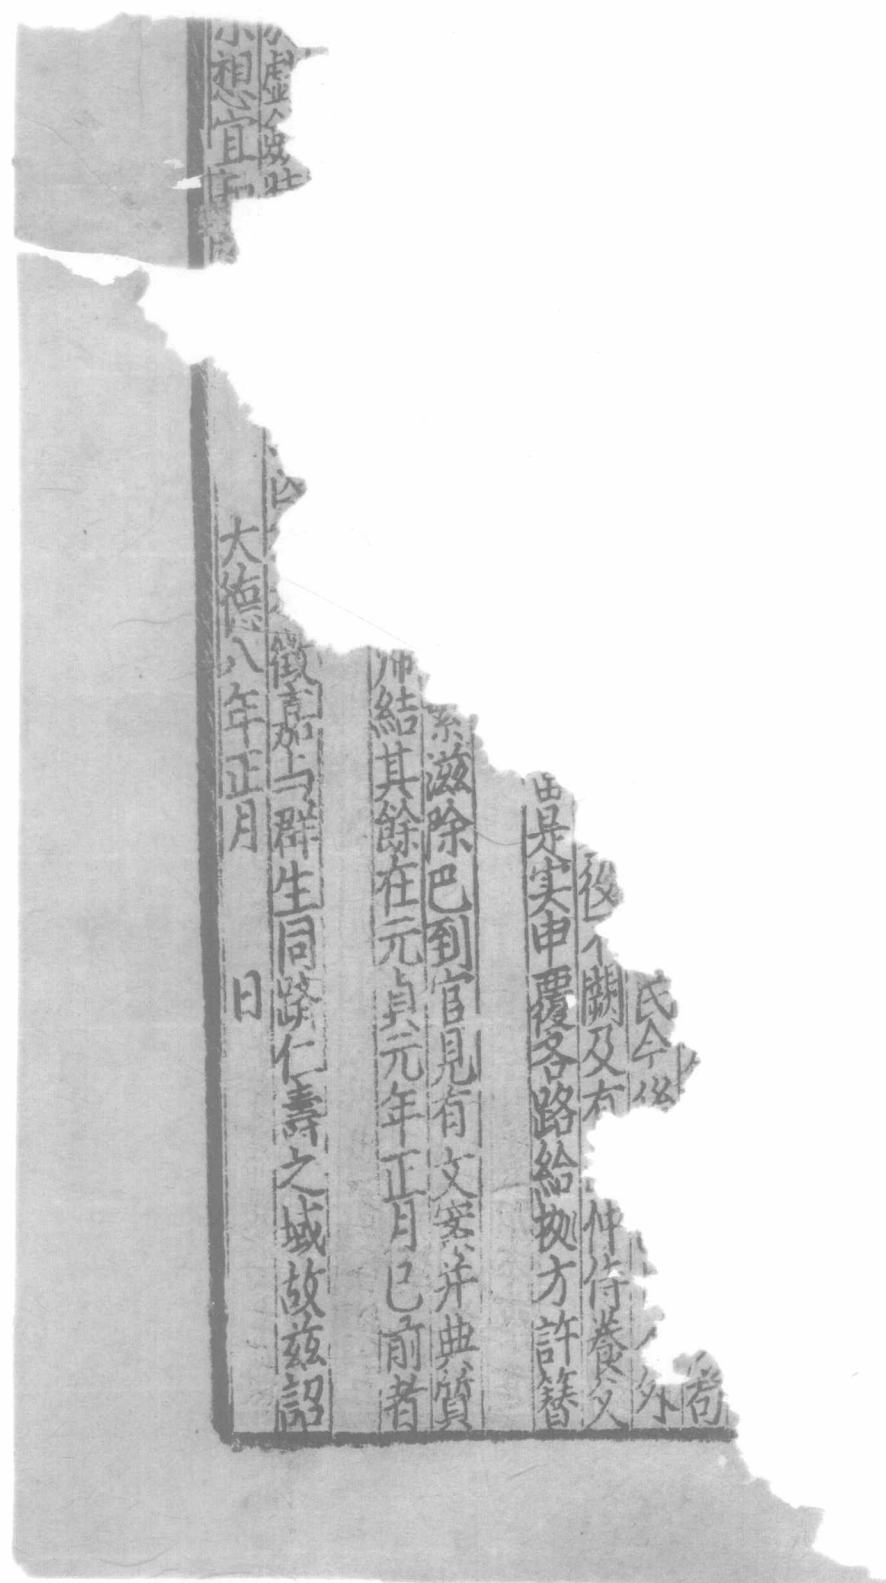 苟
民今 外
役 闕及有 仲侍養父
是实申覆各路給拠方許簪
滋除巴到官見有文案并典質
結其餘在元貞元年正月已前者
虛
徵嘉与群生同躋仁壽之域故兹詔
想宜
大德八年正月 日